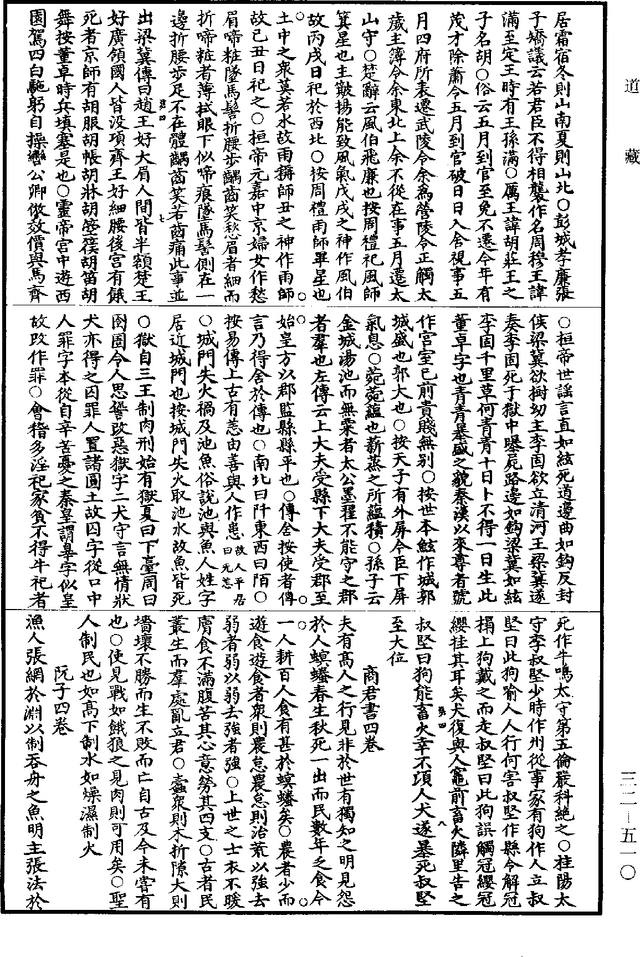 道藏
居霜宿冬則山南夏則山北○彭城孝廉張
子矯議云若君臣不得相襲作名周穆王諱
滿至定王時有王孫滿○厲王諱胡莊王之
子名胡○俗云五月到官至免不遷今年有
茂才除蕭令五月到官破日日入舍視事五
月四府所表遷武陵令余為營陵令正觸太
歲主簿令余東北上余不從在事五月遷太
山守○楚辭云風伯飛廉也按周禮祀風師
箕星也主簸揚能致風氣戊戌之神作風伯
故丙戌日祀於西北○按周禮雨師畢星也
土中之衆莫若水故雨稱師丑之神作雨師
故己丑日祀之○桓帝元嘉中京婦女作愁
眉啼粧墜馬髻折腰步齲齒笑愁眉者細而
折啼粧者薄拭眼下似啼痕墜馬髻側在一
邊折腰步足不在體齲齒笑若齒痛此事並
出梁冀傳曰趙王好大眉人間皆半額楚王
好廣領國人皆没項齊王好細腰後宮有餓
死者京師有胡服胡帳胡牀胡箜篌胡笛胡
舞按董卓時兵填塞是也○靈帝宮中遊西
園駕四白驢躬自操轡公卿倣效價與馬齊
○桓帝世謡言直如絃死道邊曲如鈎反封
侯梁冀欲樹幼主李固欲立清河王梁冀遂
奏李固死于獄中曝屍路邊如鈎梁冀如絃
李固千里草何青青十日卜不得一日生此
董卓字也青青暴盛之貌秦漢以來尊者號
作宮室已前貴賤無别○按世本鮌作城郭
城盛也郭大也○按天子有外屏令臣下屏
氣息○菀菀蘊也薪蒸之所蘊積○孫子云
金城湯池而無粟者太公墨翟不能守之郡
者羣也左傳云上大夫受縣下大夫受郡至
始皇方以郡監縣縣平也○傳舍按使者傳
言乃得舍於傳也○南北曰阡東西曰陌○
按易傳上古有恙由善與人作患故人平居曰无恙
○城門失火禍及池魚俗說池與魚人姓字
居近城門也按城門失火取池水故魚皆死
○獄自三王制肉刑始有獄夏曰下臺周曰
囹圄令人思諐改惡獄字二犬守言無情狀
犬亦得之囚罪人置諸圜土故囚字從口中
人罪字本從自辛苦憂之秦皇謂辠字似皇
故改作罪○會稽多淫祀家貧不得牛祀者
死作牛鳴太守第五倫嚴科絶之○桂陽太
守李叔堅少時作州從事家有狗作人立叔
堅曰此狗喻人人行何害叔堅作縣令解冠
榻上狗戴之而走叔堅曰此狗誤觸冠纓冠
纓挂其耳矣犬復與人竈前畜火隣里告之
叔堅曰狗能畜火幸不湏人犬遂暴死叔堅
至大位
商君書四卷
夫有髙人之行見非於世有獨知之明見怨
於人螟蟠春生秋死一出而民數年乏食今
一人耕百人食有甚於螟蟠矣○農者少而
遊食遊食者衆則農怠農怠則治荒以強去
弱者弱以弱去強者強○上世之士衣不暖
膚食不滿腹苦其心意勞其四支○古者民
叢生而羣處亂立君○蠧衆則木折隙大則
墻壞不勝而生不敗而亡自古及今未嘗有
也○使民見戰如餓狼之見肉則可用矣○聖
人制民也如高下制水如燥濕制火
阮子四卷
漁人張網於淵以制吞舟之魚明主張法於
三二—五一〇